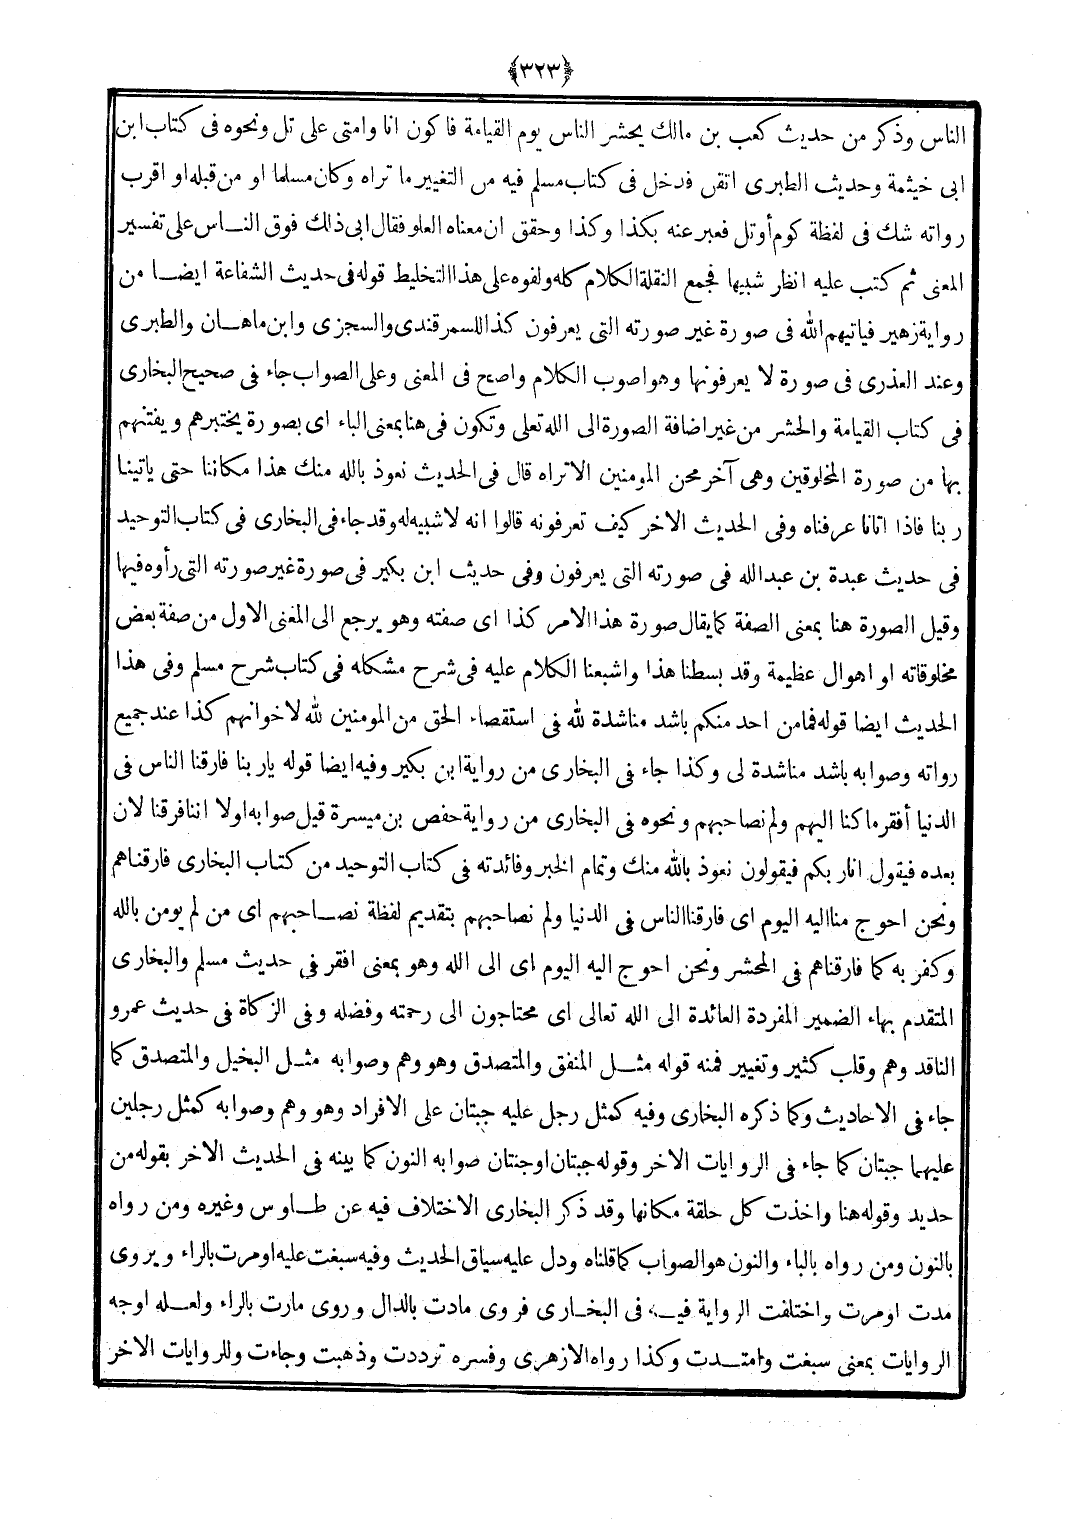 ﴿٣٢٣﴾
الناس وذكر من حديث كعب بن مالك يحشر الناس يوم القيامة فاكون انا وامتى على تل ونحوه فى كتاب ابن
ابى خيثمة وحديث الطبرى اتقن فدخل فى كتاب مسلم فيه من التغيير ما تراه وكان مسلما او من قبله او اقرب
رواته شك فى لفظة كوم أو تل فعبر عنه بكذا وكذا وحقق ان معناه العلو فقال اى ذلك فوق النـاس على تفسير
المعنى ثم كتب عليه انظر شبيها فجمع النقلة الكلام كله ولفوه على هذا التخليط قوله فى حديث الشفاعة ايضـا من
رواية زهير فياتيهم الله فى صورة غير صورته التى يعرفون كذا للسمرقندى والسجزى وابن ماهـان والطبرى
وعند العذرى فى صورة لا يعرفونها وهو اصوب الكلام واصح فى المعنى وعلى الصواب جاء فى صحيح البخارى
فى كتاب القيامة والحشر من غير اضافة الصورة الى الله تعلى وتكون فى هنا بمعنى الباء اى بصورة يختبرهم ويفتنهم
بها من صورة المخلوقين وهى آخر محن المومنين الا تراه قال فى الحديث نعوذ بالله منك هذا مكاننا حتى ياتينا
ربنا فاذا اتانا عرفناه وفى الحديث الاخر كيف تعرفونه قالوا انه لا شبيه له وقد جاء فى البخارى فى كتاب التوحيد
فى حديث عبدة بن عبدالله فى صورته التى يعرفون وفى حديث ابن بكير فى صورة غير صورته التى رأوه فيها
وقيل الصورة هنا بمعنى الصفة كما يقال صورة هذا الامر كذا اى صفته وهو يرجع الى المعنى الاول من صفة بعض
مخلوقاته او اهوال عظيمة وقد بسطنا هذا واشبعنا الكلام عليه فى شرح مشكله فى كتاب شرح مسلم وفى هذا
الحديث ايضا قوله فما من احد منكم باشد مناشدة لله فى استقصاء الحق من المومنين لله لاخوانهم كذا عند جميع
رواته وصوابه باشد مناشدة لى وكذا جاء فى البخارى من رواية ابن بكير وفيه ايضا قوله يا ربنا فارقنا الناس فى
الدنيا أفقر ما كنا اليهم ولم نصاحبهم ونحوه فى البخارى من رواية حفص بن ميسرة قيل صوابه اولا اننا فرقنا لان
بعده فيقول انا ربكم فيقولون نعوذ بالله منك وتمام الخبر وفائدته فى كتاب التوحيد من كتـاب البخارى فارقنـاهم
ونحن احوج منا اليه اليوم اى فارقنا الناس فى الدنيا ولم نصاحبهم بتقديم لفظة نصـاحبهم اى من لم يومن بالله
وكفر به كما فارقناهم فى المحشر ونحن احوج اليه اليوم اى الى الله وهو بمعنى افقر فى حديث مسلم والبخارى
المتقدم بهاء الضمير المفردة العائدة الى الله تعالى اى محتاجون الى رحمته وفضله وفى الزكاة فى حديث عمرو
الناقد وهم وقلب كثير وتغيير فمنه قوله مثـل المنفق والمتصدق وهو وهم وصوابه مثـل البخيل والمتصدق كما
جاء فى الاحاديث وكما ذكره البخارى وفيه كمثل رجل عليه جبتان على الافراد وهو وهم وصوابه كمثل رجلين
عليهما جبتان كما جاء فى الروايات الاخر وقوله جبتان او جنتان صوابه النون كما بينه فى الحديث الاخر بقوله من
حديد وقوله هنا واخذت كل حلقة مكانها وقد ذكر البخارى الاختلاف فيه عن طـاوس وغيره ومن رواه
بالنون ومن رواه بالباء والنون هو الصواب كما قلناه ودل عليه سياق الحديث وفيه سبغت عليه او مرت بالراء ويروى
مدت او مرت واختلفت الرواية فيـه فى البخـارى فروى مادت بالدال وروى مارت بالراء ولعـله اوجه
الروايات بمعنى سبغت وامتـدت وكذا رواه الازهرى وفسره ترددت وذهبت وجاءت وللروايات الاخر